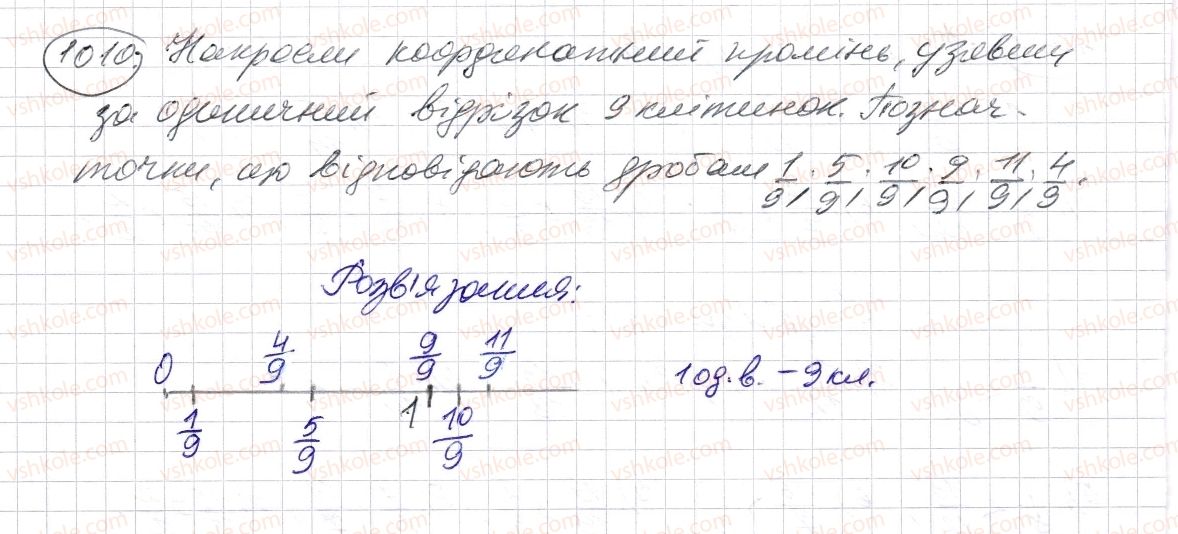 1010. Накресли координатний промінь, узявши
за одиничний відрізок 9 клітинок. Познач
точки, що відповідають дробам 1/9; 5/9; 10/9; 9/9; 11/9; 4/9.
Розв'язання:
0 4/9 9/9 11/9
1 од. в. – 9 кл.
1/9 5/9 1 10/9
vshkole.com